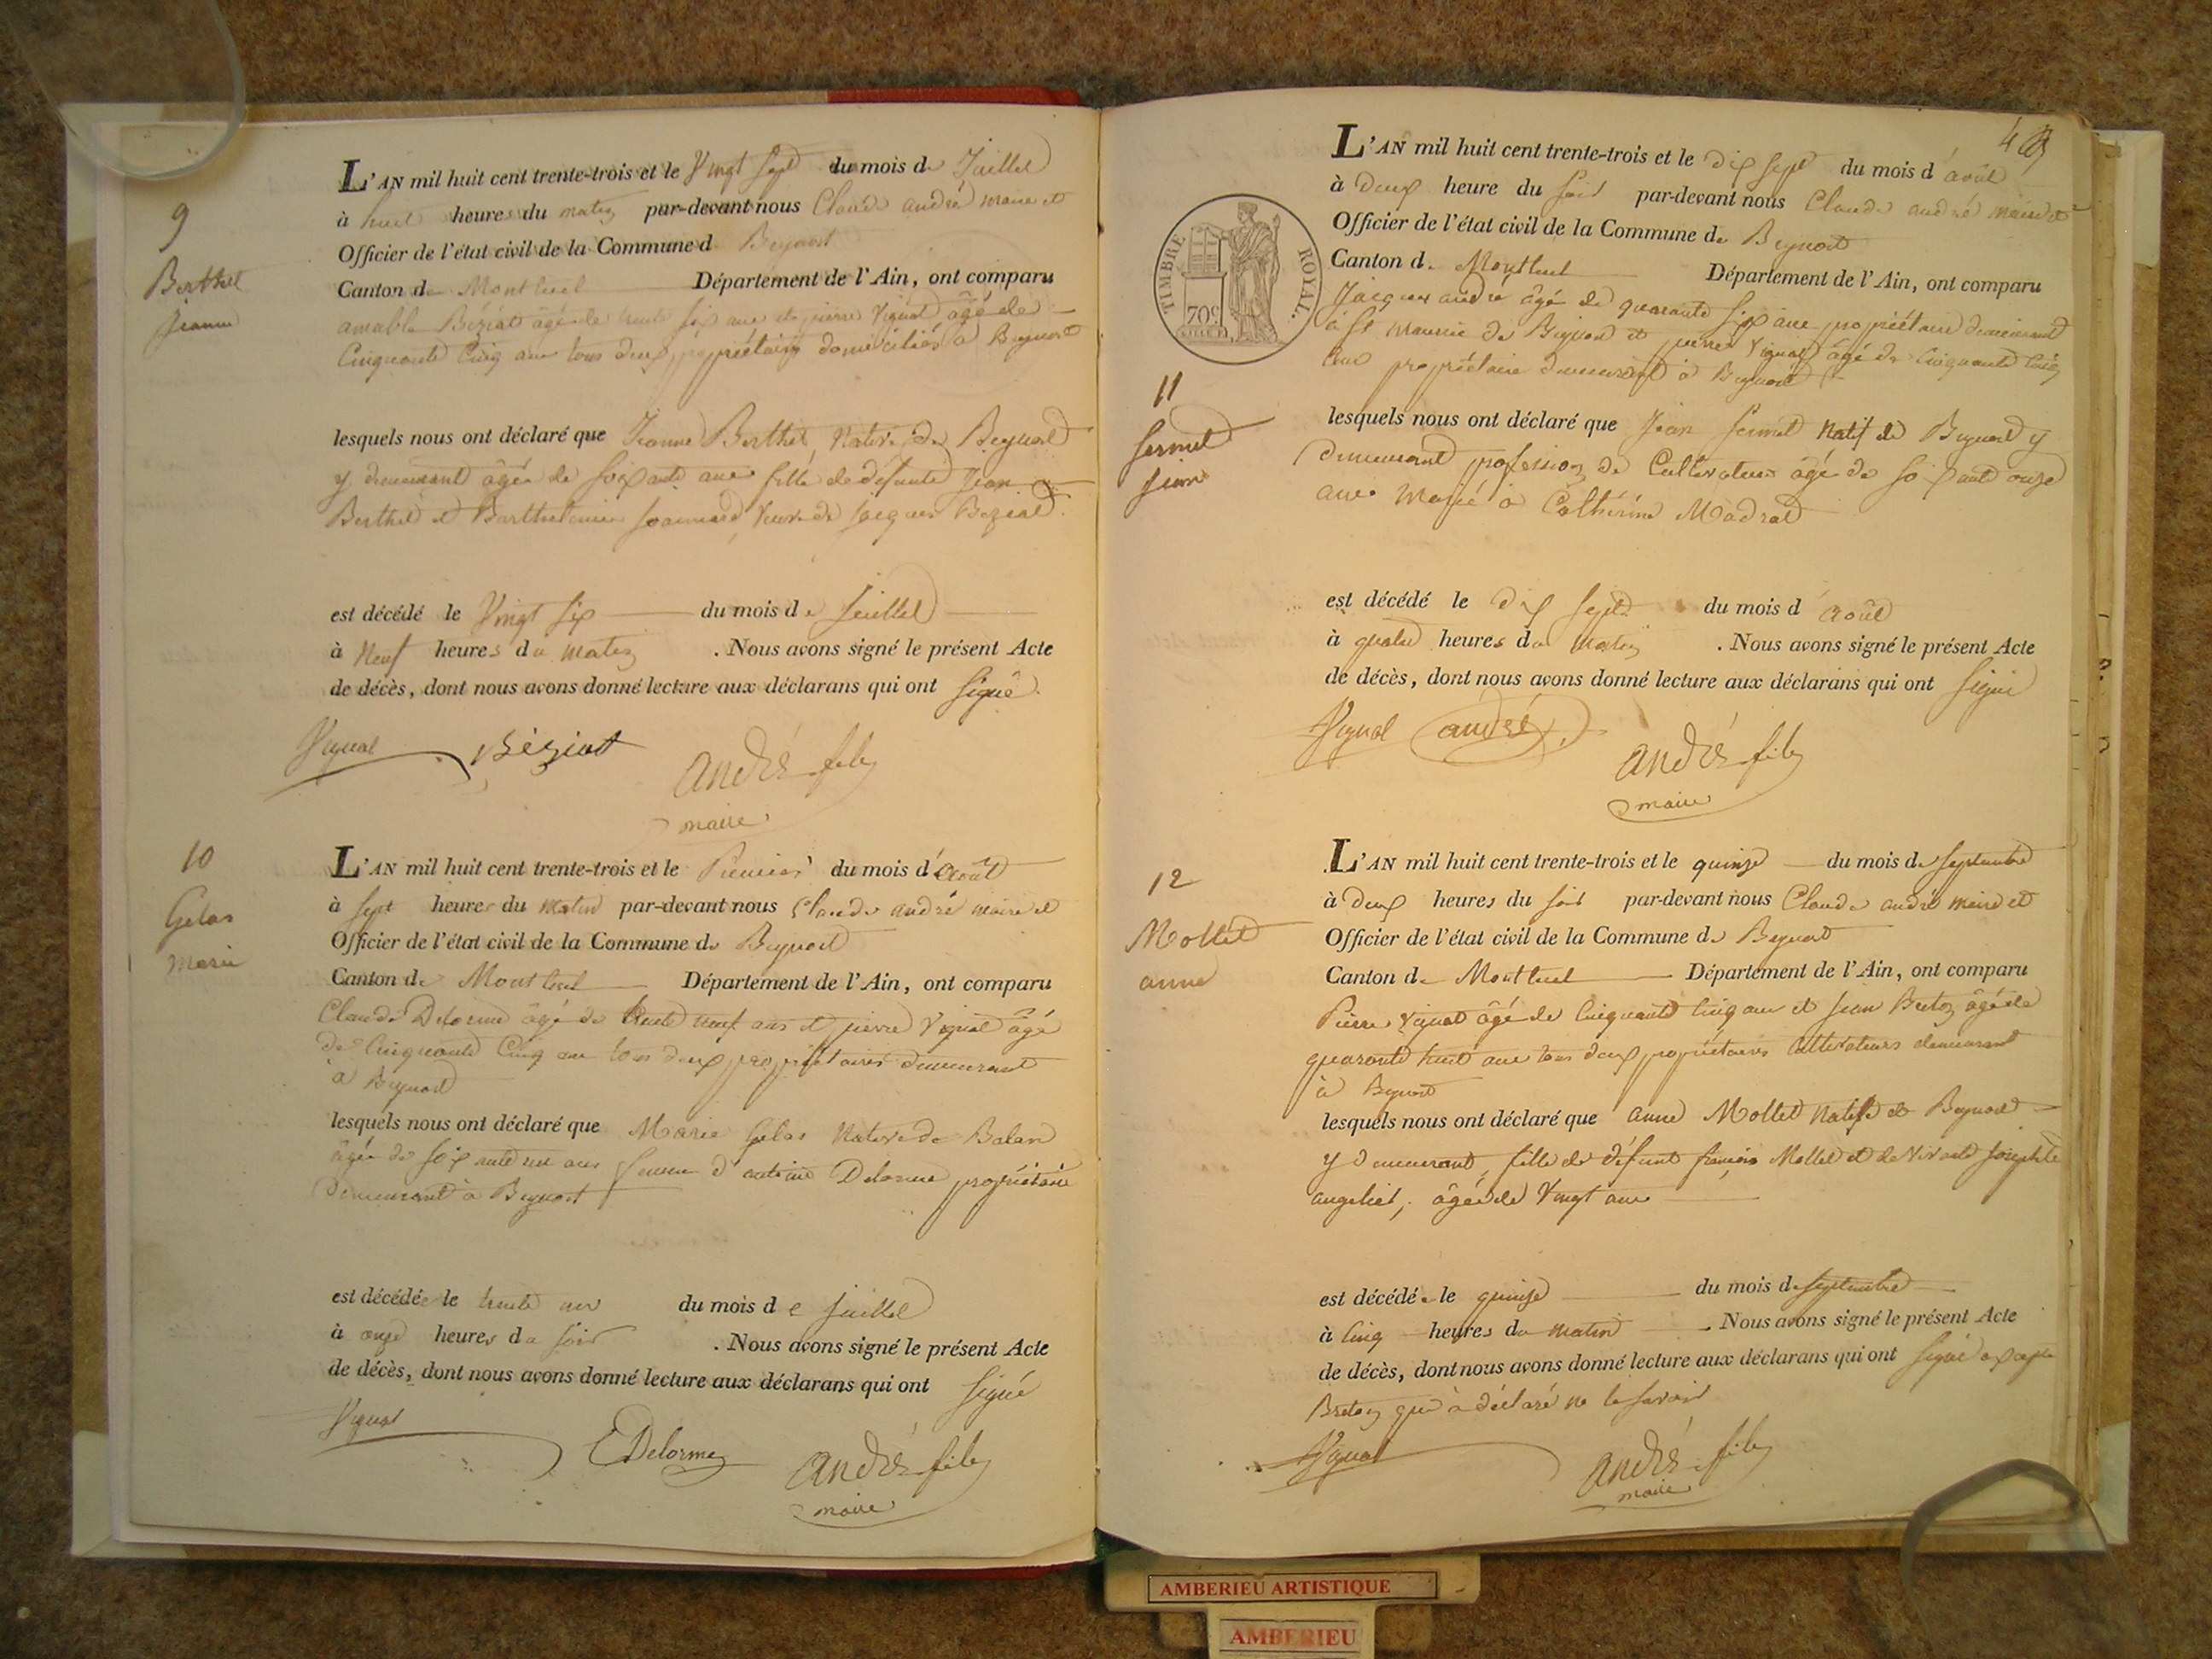 9
Berthet
Jeanne
L'AN mil huit cent trente-trois et le Vingt Sept du mois de Juillet
à huit heures du matin par-devant nous Claude andré maire et
Officier de l'état civil de la Commune de Beynost
Canton de Montluel Département de l'Ain, ont comparu
amable Béziat âgé de trente six ans et pierre Vignat âgé de
Cinquante Cinq ans tous deux propriétaires domiciliés à Beynost
lesquels nous ont déclaré que Jeanne Berthet, Native de Beynost
y demeurant âgée de soixante ans fille de défunts Jean
Berthet et Barthelemie Joannard, Veuve de Jacques Beziat.
est décédé le Vingt six du mois de Juillet
à Neuf heures du matin . Nous avons signé le présent Acte
de décès, dont nous avons donné lecture aux déclarans qui ont signé.
Vignat Béziat andré fils
maire
10
Gelas
marie
L'AN mil huit cent trente-trois et le Premier du mois d'août
à sept heures du matin par-devant nous Claude andré maire et
Officier de l'état civil de la Commune de Beynost
Canton de Montluel Département de l'Ain, ont comparu
Claude Delorme âgé de trente neuf ans et pierre Vignat âgé
de Cinquante Cinq ans tous deux propriétaires demeurant
à Beynost
lesquels nous ont déclaré que Marie Gelas Native de Balan
âgée de soixante un ans femme d'antoine Delorme propriétaire
Demeurant à Beynost
est décédée le trente un du mois de Juillet
à onze heures du soir . Nous avons signé le présent Acte
de décès, dont nous avons donné lecture aux déclarans qui ont signé
Vignat CDelorme andré fils
maire
4
TIMBRE ROYAL.
70c
11
Jean
L'AN mil huit cent trente-trois et le dix sept du mois d'août
à deux heure du soir par-devant nous Claude andré maire et
Officier de l'état civil de la Commune de Beynost
Canton de Montluel Département de l'Ain, ont comparu
Jacques andré âgé de quarante six ans propriétaire demeurant
à St Maurice de Beynost et pierre Vignat âgé de Cinquante Cinq
ans propriétaire demeurant à Beynost
lesquels nous ont déclaré que Jean natif de Beynost y
Demeurant profession de Cultivateur âgé de soixante onze
ans Marié à Cathérine Madrat
est décédé le dix sept du mois d'août
à quatre heures du matin . Nous avons signé le présent Acte
de décès, dont nous avons donné lecture aux déclarans qui ont signé
Vignat andré andré fils
maire
12
Mollet
anne
L'AN mil huit cent trente-trois et le quinze du mois de septembre
à deux heures du soir par-devant nous Claude andré maire et
Officier de l'état civil de la Commune de Beynost
Canton de Montluel Département de l'Ain, ont comparu
Pierre Vignat âgé de Cinquante Cinq ans et Jean Breton âgé de
quarante huit ans tous deux propriétaires Cultivateurs demeurant
à Beynost
lesquels nous ont déclaré que anne Mollet native de Beynost
y demeurant, fille de défunt françois Mollet et de Vivante Josephte
angeliet, âgée de Vingt ans
est décédée le quinze du mois de septembre
à Cinq heures du matin . Nous avons signé le présent Acte
de décès, dont nous avons donné lecture aux déclarans qui ont signé excepté
Breton qui à déclaré ne le savoir
Vignat andré fils
maire
AMBERIEU ARTISTIQUE
AMBERIEU